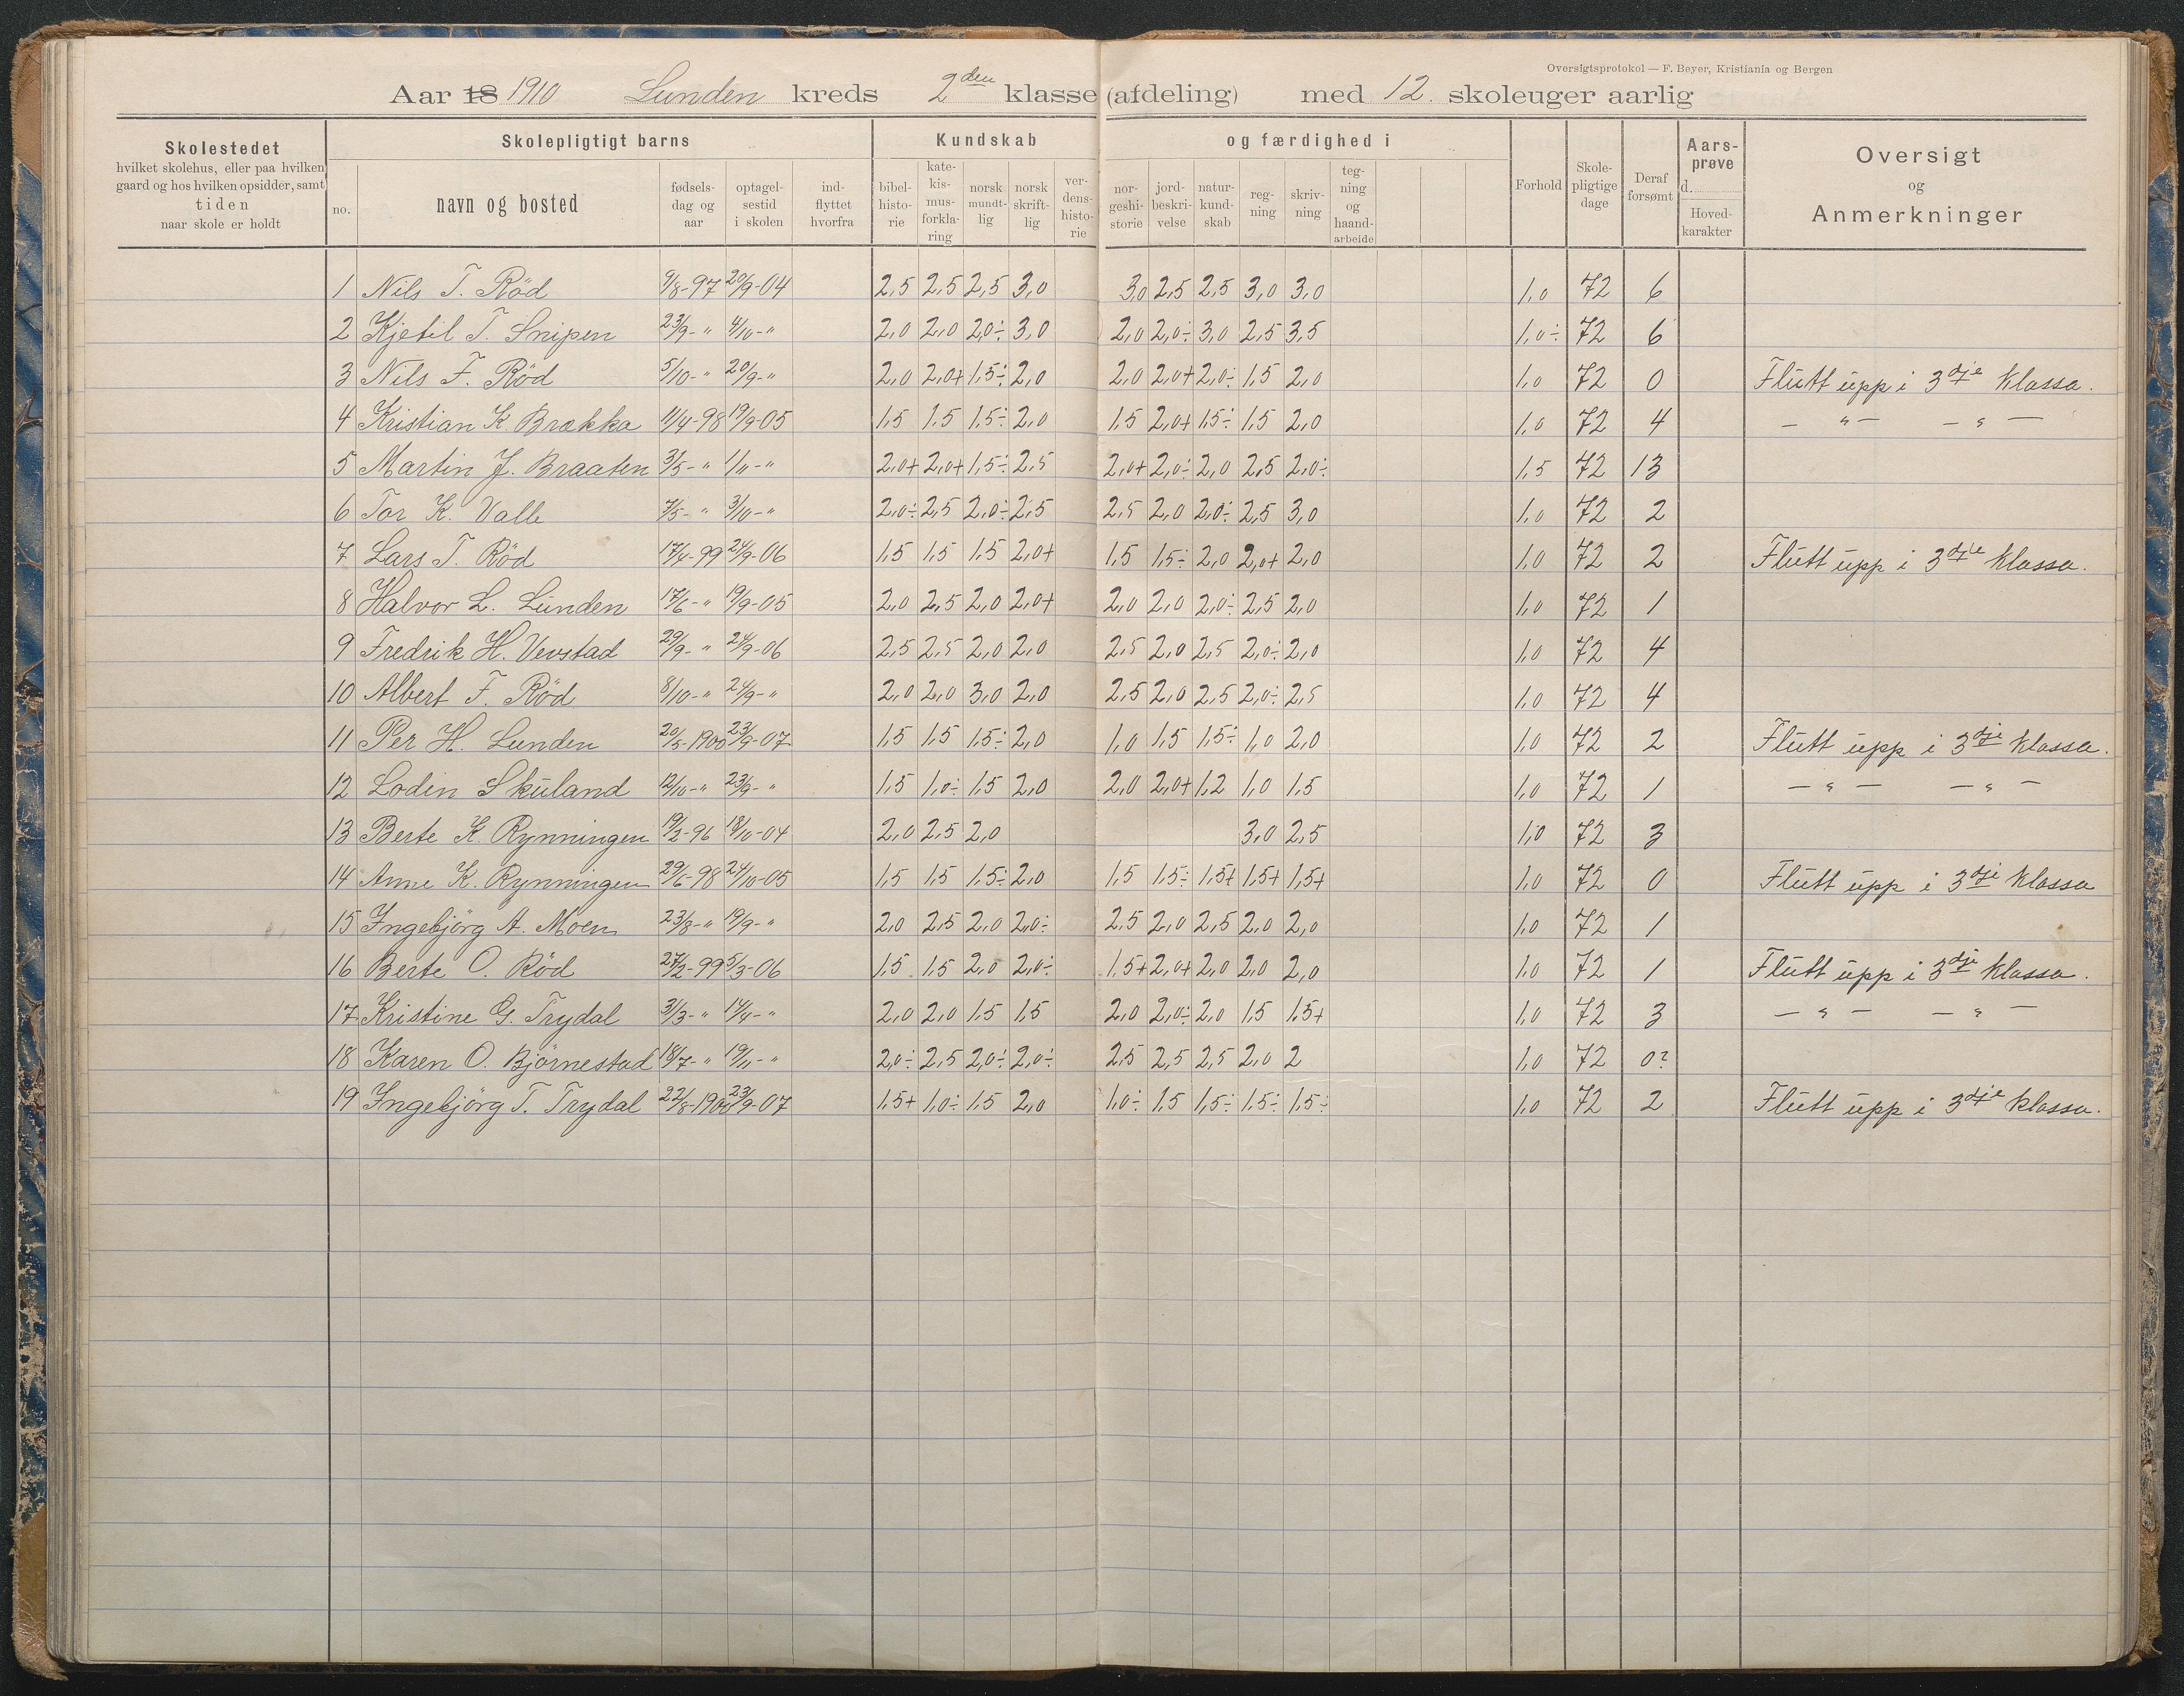 Oversigtsprotokol — F. Beyer, Kristiania og Bergen
Aar 18 1910 Lunden kreds 2den klasse (afdeling) med 12. skoleuger aarlig
Skolestedet
hvilket skolehus, eller paa hvilken
gaard og hos hvilken opsidder, samt
tiden
naar skole er holdt
Skolepligtigt barns
no.
navn og bosted
fødsels-
dag og
aar
optagel-
sestid
i skolen
ind-
flyttet
hvorfra
Kundskab
bibel-
histo-
rie
kate-
kis-
mus-
forkla-
ring
norsk
mundt-
lig
norsk
skrift-
lig
ver-
dens-
histo-
rie
og færdighed i
nor-
geshi-
storie
jord-
beskri-
velse
natur-
kund-
skab
reg-
ning
skriv-
ning
teg-
ning
og
haand-
arbeide
Forhold
Skole-
pligtige
dage
Deraf
forsømt
Aars-
prøve
d.
Hoved-
karakter
Oversigt
og
Anmerkninger
1 Nils T. Röd 9/8-97 20/9-04 2,5 2,5 2,5 3,0 3,0 2,5 2,5 3,0 3,0 1,0 72 6
2 Kjetil T. Snipen 23/9- " 4/10- " 2,0 2,0 2,0÷ 3,0 2,0 2,0÷ 3,0 2,5 3,5 1,0÷ 72 6
3 Nils F. Röd 5/10- " 20/9- " 2,0 2,0+ 1,5÷ 2,0 2,0 2,0+ 2,0÷ 1,5 2,0 1,0 72 0 Flutt upp i 3dje klassa.
4 Kristian K. Brækka 11/4-98 19/9-05 1,5 1,5 1,5÷ 2,0 1,5 2,0+ 1,5÷ 1,5 2,0 1,0 72 4 — " — — " —
5 Martin J. Braaten 3/5- " 1/11- " 2,0+ 2,0+ 1,5÷ 2,5 2,0+ 2,0÷ 2,0 2,5 2,0÷ 1,5 72 13
6 Tor K. Valle 7/5- " 3/10- " 2,0÷ 2,5 2,0÷ 2,5 2,5 2,0 2,0÷ 2,5 3,0 1,0 72 2
7 Lars T. Röd 17/4-99 24/9-06 1,5 1,5 1,5 2,0+ 1,5 1,5÷ 2,0 2,0+ 2,0 1,0 72 2 Flutt upp i 3dje klassa.
8 Halvor L. Lunden 17/6- " 19/9-05 2,0 2,5 2,0 2,0+ 2,0 2,0 2,0÷ 2,5 2,0 1,0 72 1
9 Fredrik H. Vevstad 29/9- " 24/9-06 2,5 2,5 2,0 2,0 2,5 2,0 2,5 2,0÷ 2,0 1,0 72 4
10 Albert F. Röd 8/10- " 24/9- " 2,0 2,0 3,0 2,0 2,5 2,0 2,5 2,0÷ 2,5 1,0 72 4
11 Per H. Lunden 20/5-1900 23/9-07 1,5 1,5 1,5÷ 2,0 1,0 1,5 1,5÷ 1,0 2,0 1,0 72 2 Flutt upp i 3dje klassa.
12 Lodin Skuland 12/10- " 23/9- " 1,5 1,0÷ 1,5 2,0 2,0 2,0+ 1,2 1,0 1,5 1,0 72 1 — " — — " —
13 Berte K. Rynningen 19/2-96 18/10-04 2,0 2,5 2,0 3,0 2,5 1,0 72 3
14 Anne K. Rynningen 29/6-98 24/10-05 1,5 1,5 1,5÷ 2,0 1,5 1,5÷ 1,5+ 1,5+ 1,5+ 1,0 72 0 Flutt upp i 3dje klassa
15 Ingebjörg A. Moen 23/8- " 19/9- " 2,0 2,5 2,0 2,0÷ 2,5 2,0 2,5 2,0 2,0 1,0 72 1
16 Berte O. Röd 27/2-99 5/3-06 1,5 1,5 2,0 2,0÷ 1,5+ 2,0+ 2,0 2,0 2,0 1,0 72 1 Flutt upp i 3dje klassa.
17 Kristine G. Trydal 31/3- " 14/4- " 2,0 2,0 1,5 1,5 2,0 2,0÷ 2,0 1,5 1,5+ 1,0 72 3 — " — — " —
18 Karen O. Björnestad 18/7- " 19/11- " 2,0÷ 2,5 2,0÷ 2,0÷ 2,5 2,5 2,5 2,0 2 1,0 72 0?
19 Ingebjörg T. Trydal 22/8-1900 23/9-07 1,5+ 1,0÷ 1,5 2,0 1,0÷ 1,5 1,5÷ 1,5÷ 1,5÷ 1,0 72 2 Flutt upp i 3dje klassa.